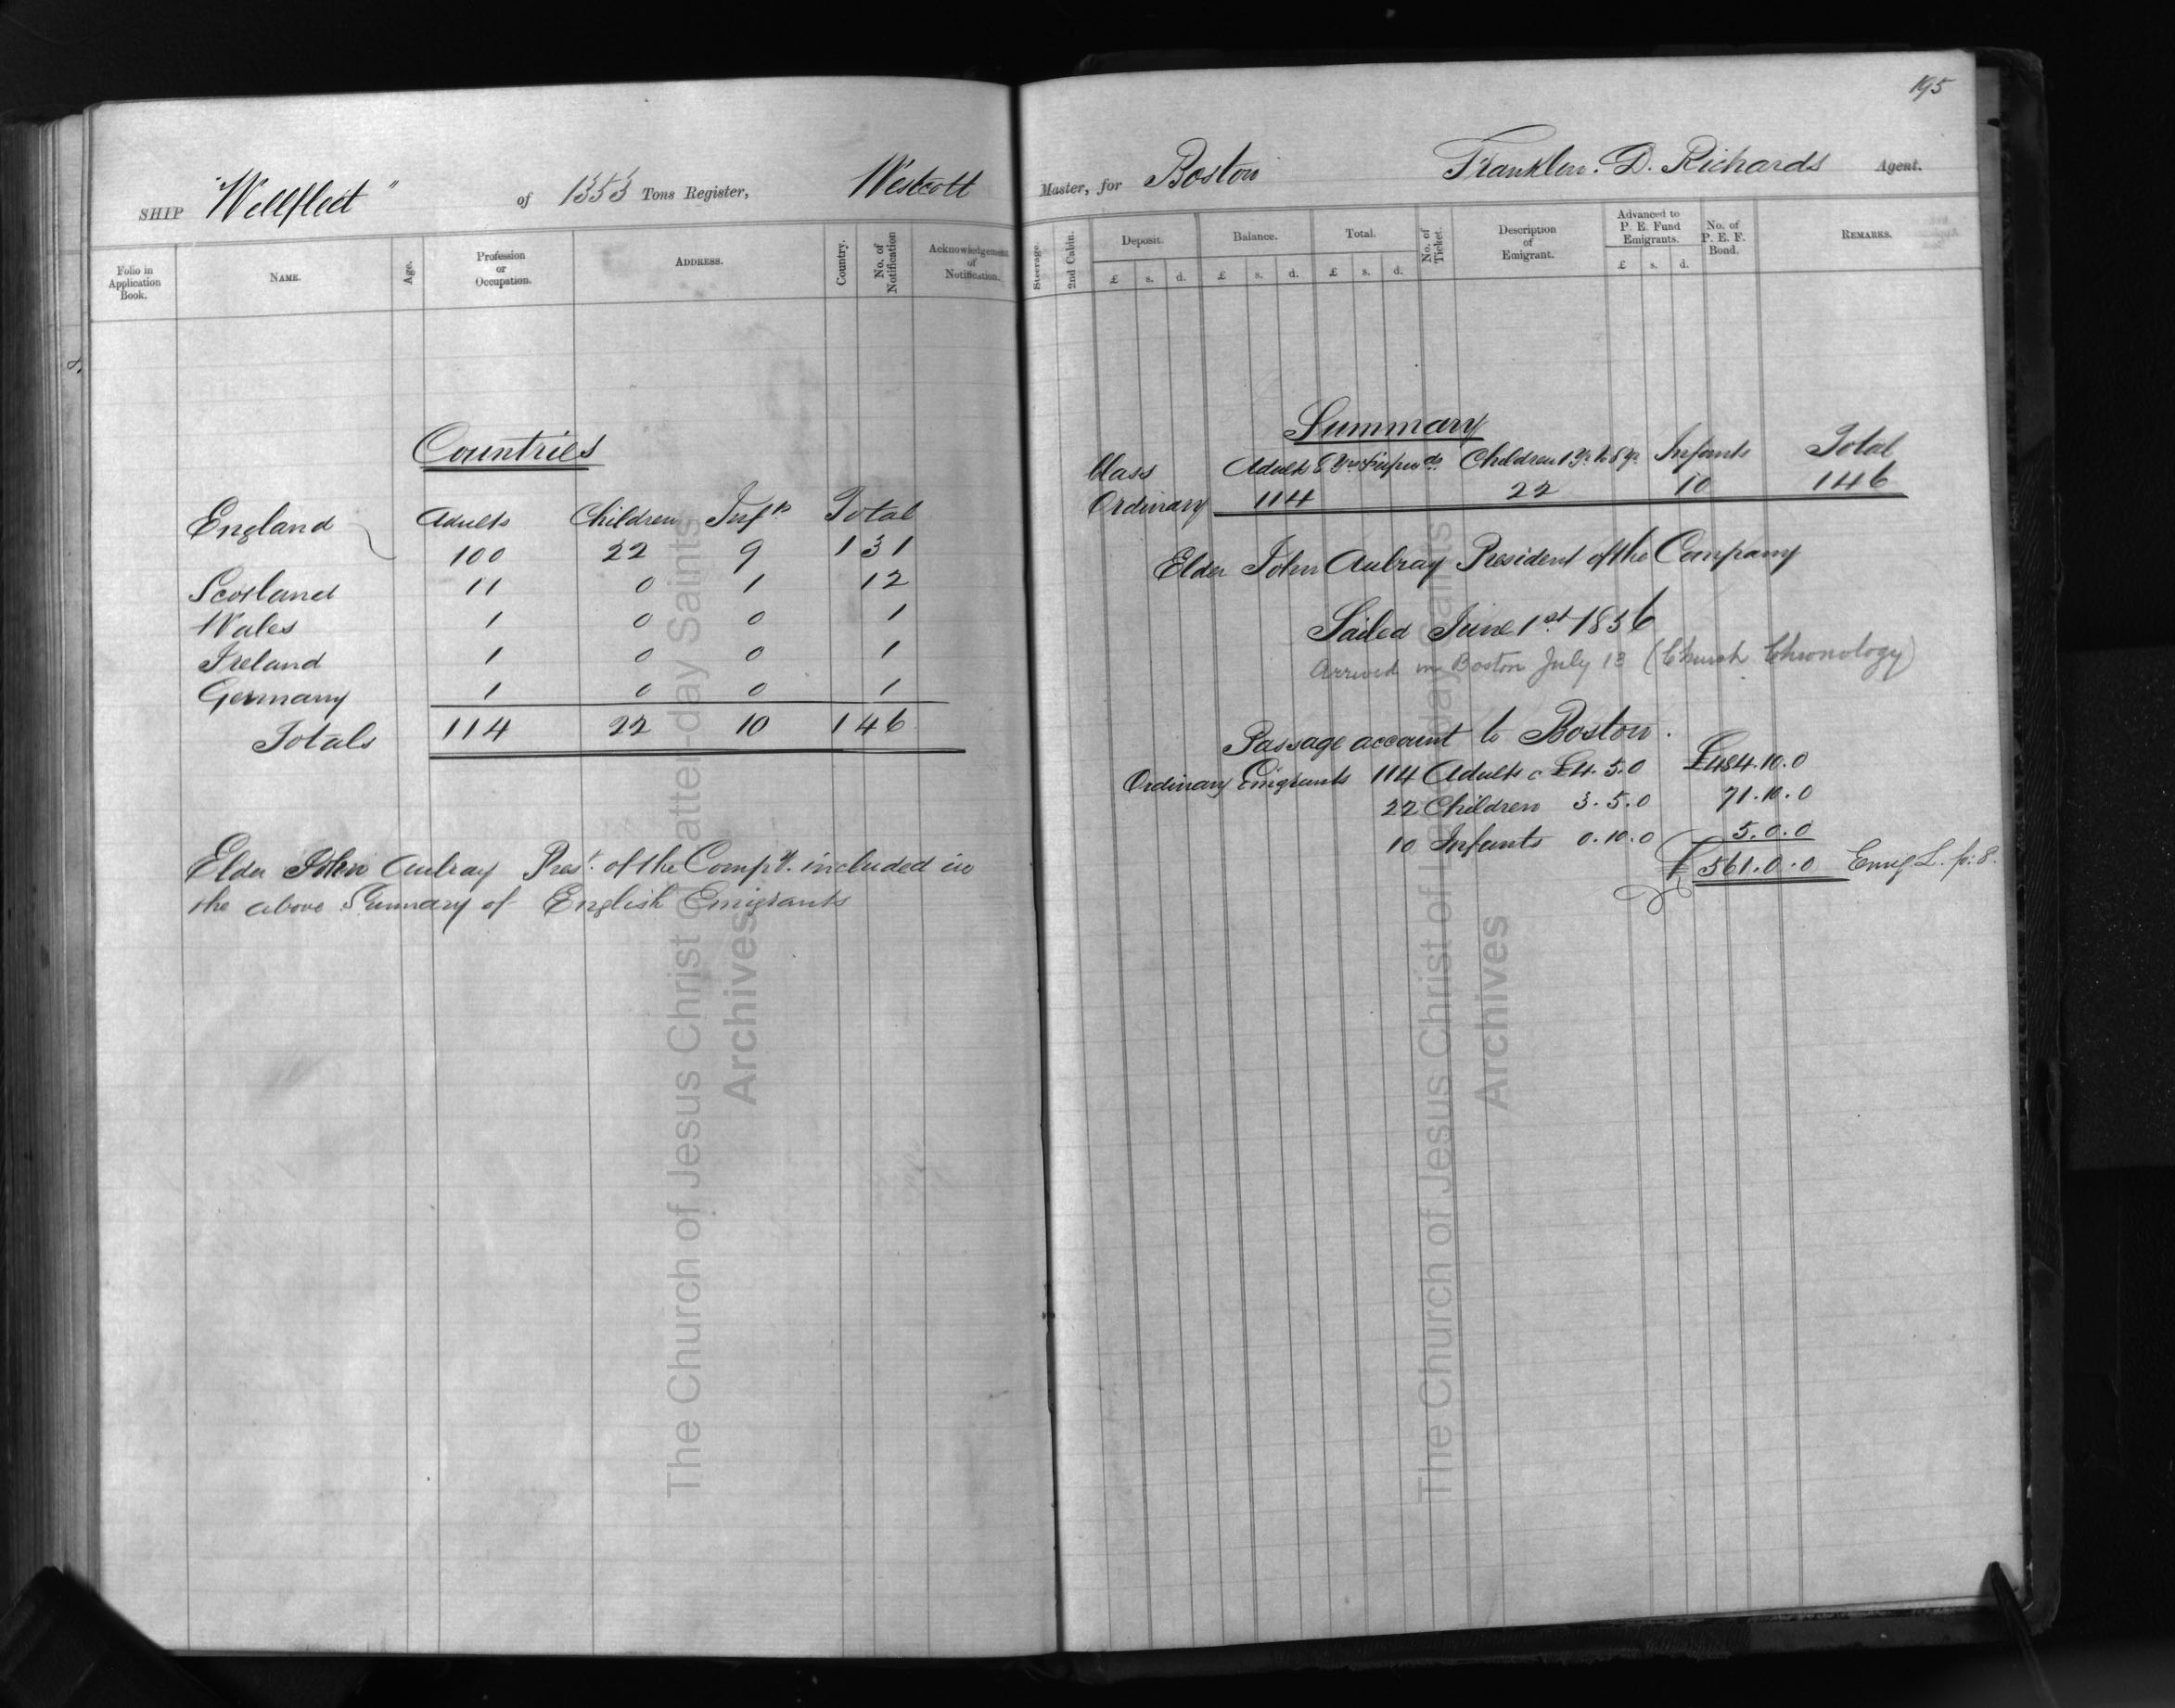 SHIP "Wellfleet" of 1353 Tons Register, Westcott
Folio in Application Book.
NAME.
Age.
Profession or Occupation.
ADDRESS.
Country.
No. of Notification
Acknowledgement of Notification.
Countries
England Adults Children Infts Total
100 22 9 131
Scotland 11 0 1 12
Wales 1 0 0 1
Ireland 1 0 0 1
Germany 1 0 0 1
Totals 114 22 10 146
Elder John Aubray Prest. of the Compy. included in
the above Summary of English Emigrants
The Church of Jesus Christ of Latter-day Saints
Archives
195
Master, for Boston Franklin. D. Richards Agent.
Steerage.
2nd Cabin.
Deposit.
£ s. d.
Balance.
£ s. d.
Total.
£ s. d.
No. of Ticket.
Description of Emigrant.
Advanced to P. E. Fund Emigrants.
£ s. d.
No. of P. E. F. Bond.
REMARKS.
Summary
Class Adults 8 Yrs & upwds Children 1 Yr. to 8 Yr. Infants Total
Ordinary 114 22 10 146
Elder John Aubray President of the Company
Sailed June 1st 1856
Arrived in Boston July 13 (Church Chronology)
Passage account to Boston.
Ordinary Emigrants 114 Adults @ £4.5.0 £484.10.0
22 Children 3.5.0 71.10.0
10 Infants 0.10.0 5.0.0
£561.0.0 Emig L. p: 8.
The Church of Jesus Christ of Latter-day Saints
Archives